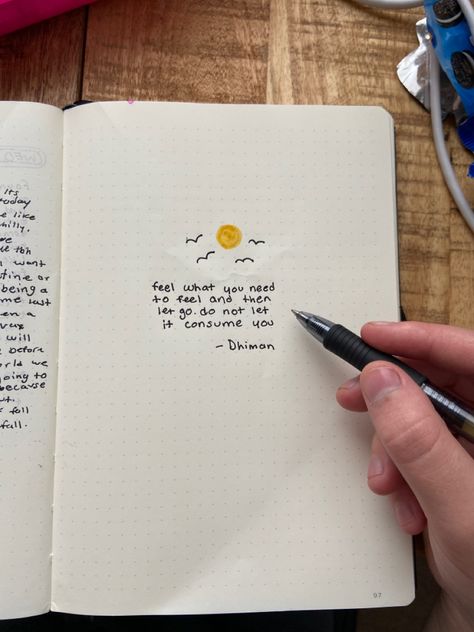 Its
today
e like
hilly.
we
tbh
want
tine or
being a
me last
en a
will
before
orld we
going to
because
out.
fall
fall.
feel what you need
to feel and then
let go. do not let
it consume you
- Dhiman
97